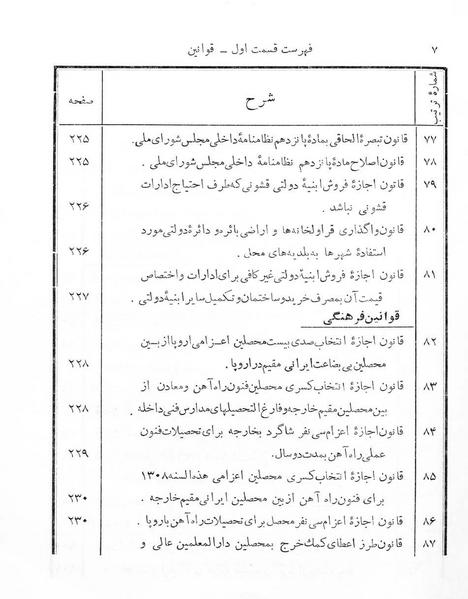 ۷ فهرست قسمت اول - قوانین
شمارهٔ ترتیب شرح صفحه
۷۷ قانون تبصرهٔ الحاقی بمادهٔ پانزدهم نظامنامهٔ داخلی مجلس شورای ملی. ۲۲۵
۷۸ قانون اصلاح مادهٔ پانزدهم نظامنامهٔ داخلی مجلس شورای ملی . ۲۲۵
۷۹ قانون اجازهٔ فروش ابنیهٔ دولتی قشونی که طرف احتیاج ادارات
قشونی نباشد . ۲۲۶
۸۰ قانون واگذاری قراولخانه‌ها و اراضی بائره و دائرهٔ دولتی مورد
استفادهٔ شهرها به بلدیه‌های محل . ۲۲۶
۸۱ قانون اجازهٔ فروش ابنیهٔ دولتی غیر کافی برای ادارات و اختصاص
قیمت آن بمصرف خرید و ساختمان و تکمیل سایر ابنیهٔ دولتی . ۲۲۷
قوانین فرهنگی
۸۲ قانون اجازهٔ انتخاب صدی بیست محصلین اعزامی اروپا از بین
محصلین بی بضاعت ایرانی مقیم در اروپا . ۲۲۸
۸۳ قانون اجازهٔ انتخاب کسری محصلین فنون راه آهن و معادن از
بین محصلین مقیم خارجه و فارغ التحصیلهای مدارس فنی داخله . ۲۲۸
۸۴ قانون اجازهٔ اعزام سی نفر شاگرد بخارجه برای تحصیلات فنون
عملی راه آهن بمدت دو سال. ۲۲۹
۸۵ قانون اجازهٔ انتخاب کسری محصلین اعزامی هذه السنه ۱۳۰۸
برای فنون راه آهن از بین محصلین ایرانی مقیم خارجه . ۲۳۰
۸۶ قانون اجازهٔ اعزام سی نفر محصل برای تحصیلات راه آهن باروپا . ۲۳۰
۸۷ قانون طرز اعطای کمک خرج بمحصلین دارالمعلمین عالی و